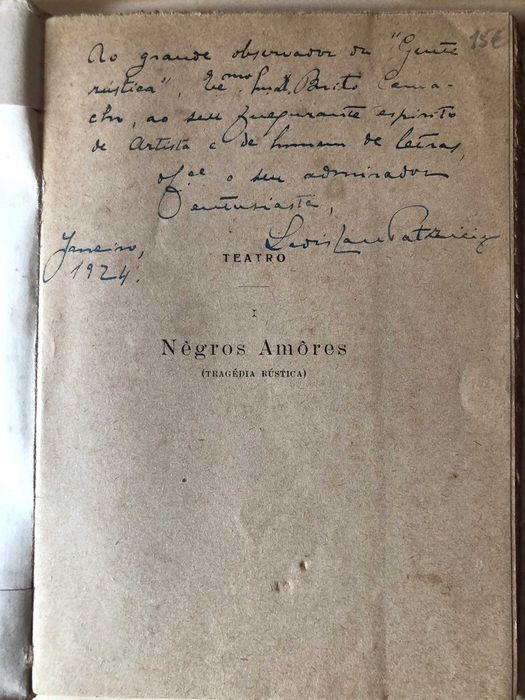 15€
Ao grande observador da "Gente
rústica", Exmo Snr. Brito Cama-
cho, ao seu fulgurante espirito
de Artista e de homem de letras,
of.ce o seu admirador
entusiasta,
Ladislau Patricio
Janeiro,
1924.
TEATRO
I
Nêgros Amôres
(TRAGÉDIA RÚSTICA)